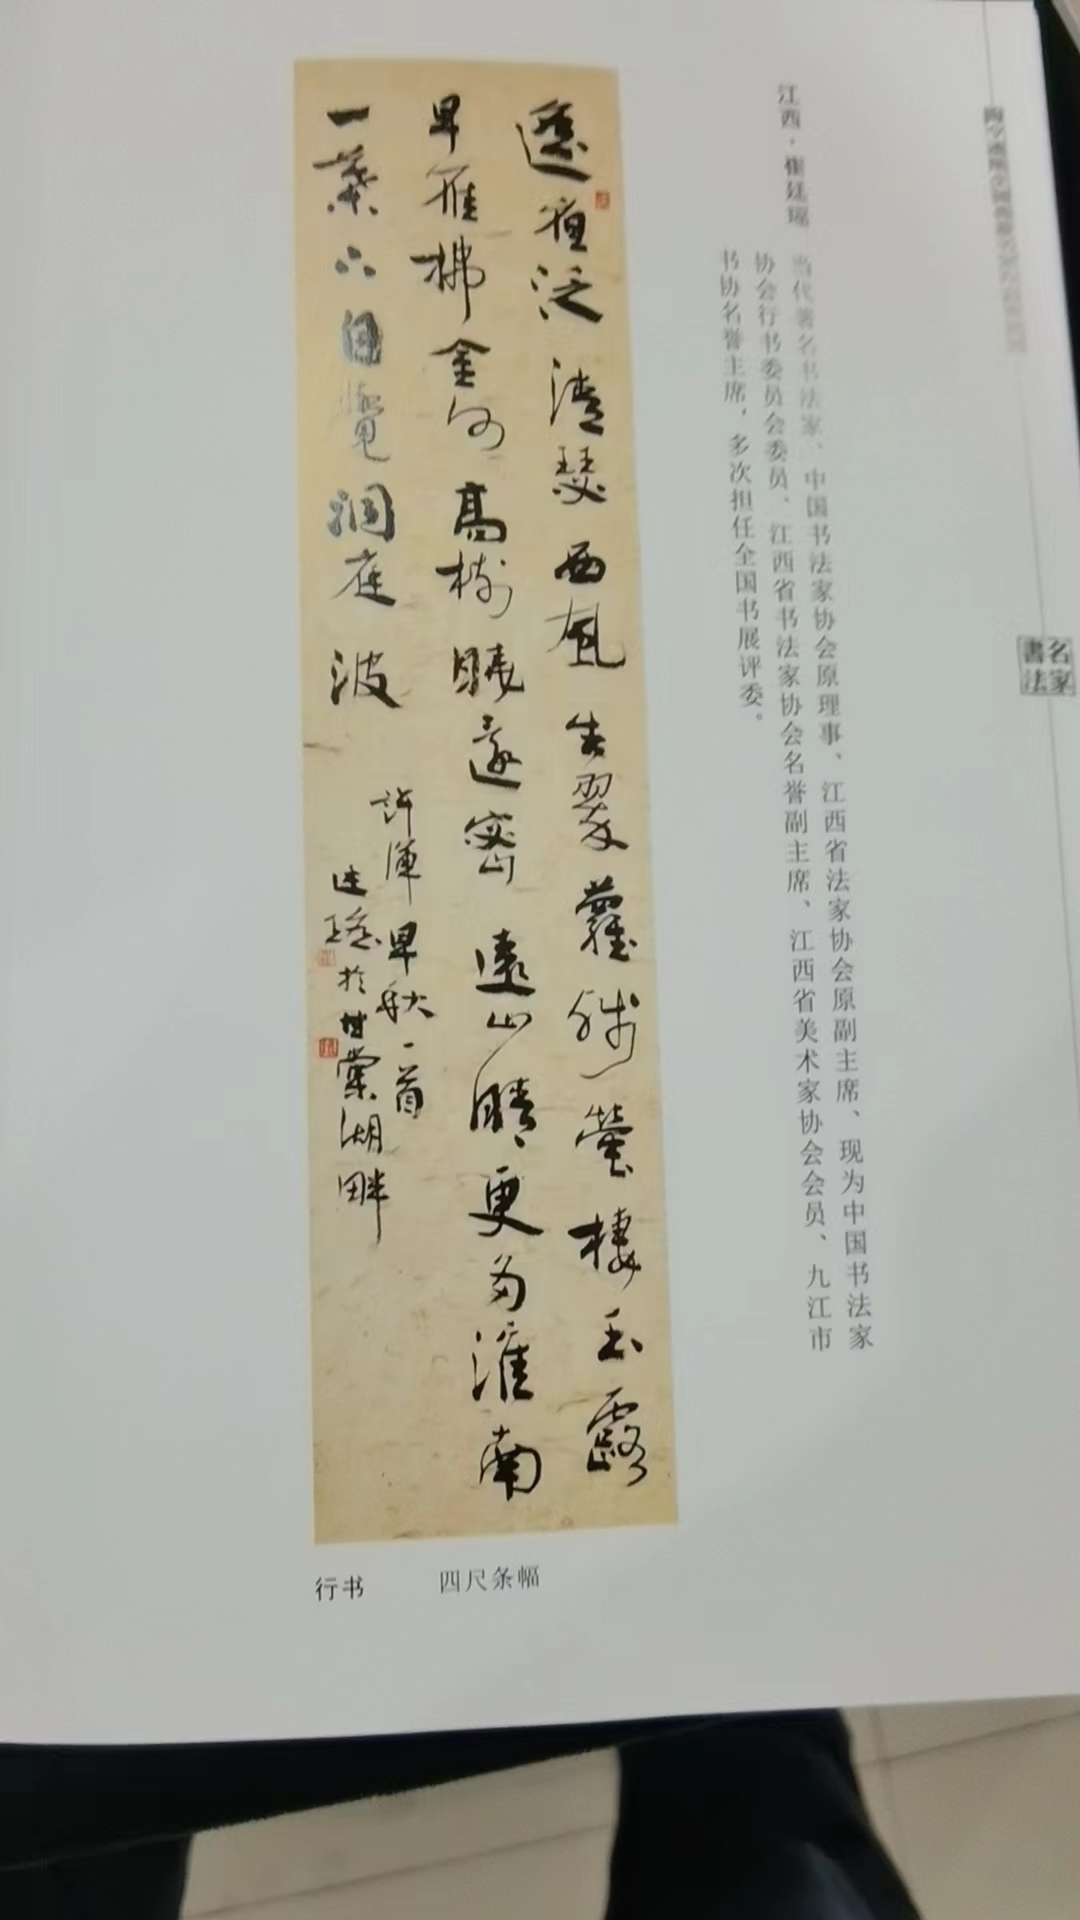 名家
書法
江西·崔廷瑶 当代著名书法家、中国书法家协会原理事、江西省法家协会原副主席、现为中国书法家
协会行书委员会委员、江西省书法家协会名誉副主席、江西省美术家协会会员、九江市
书协名誉主席，多次担任全国书展评委。
遥夜泛清瑟西風生翠蘿殘螢棲玉露
早雁拂金河高樹曉還密遠山晴更多淮南
一葉下自覺洞庭波
許渾早秋一首
廷瑤於甘棠湖畔
行书 四尺条幅